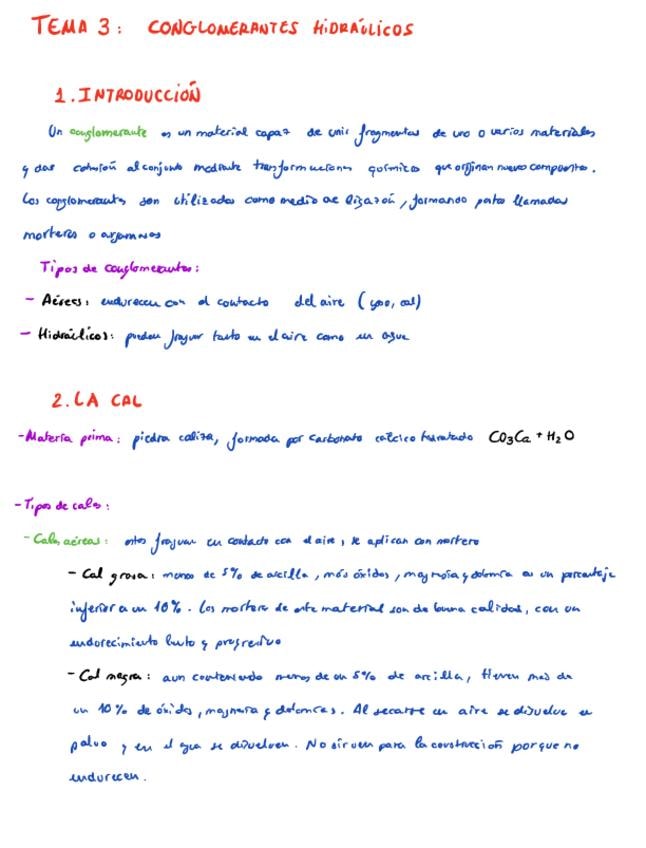 TEMA 3: CONGLOMERANTES HIDRÁULICOS
1. INTRODUCCIÓN
Un conglomerante es un material capaz de unir fragmentos de uno o varios materiales
y dar cohesión al conjunto mediante transformaciones químicas que originan nuevo compuestos.
Los conglomerantes son utilizados como medio de ligazón, formando pastas llamadas
morteros o argamasas
Tipos de conglomerantes:
- Aéreos: endurecen con el contacto del aire (yeso, cal)
- Hidráulicos: pueden fraguar tanto en el aire como en agua
2. LA CAL
- Materia prima: piedra caliza, formada por carbonato cálcico hidratado CO3Ca + H2O
- Tipos de cales:
- Cales aéreas: estos fraguan en contacto con el aire, se aplican con mortero
- Cal grasa: menos de 5% de arcilla, más óxidos, magnesia y dolomía en un porcentaje
inferior a un 10%. Los morteros de este material son de buena calidad, con un
endurecimiento lento y progresivo
- Cal magra: aun conteniendo menos de un 5% de arcilla, tienen más de
un 10% de óxidos, magnesia y dolomías. Al secarse en aire se disuelve en
polvo y en el agua se disuelven. No sirven para la construcción porque no
endurecen.